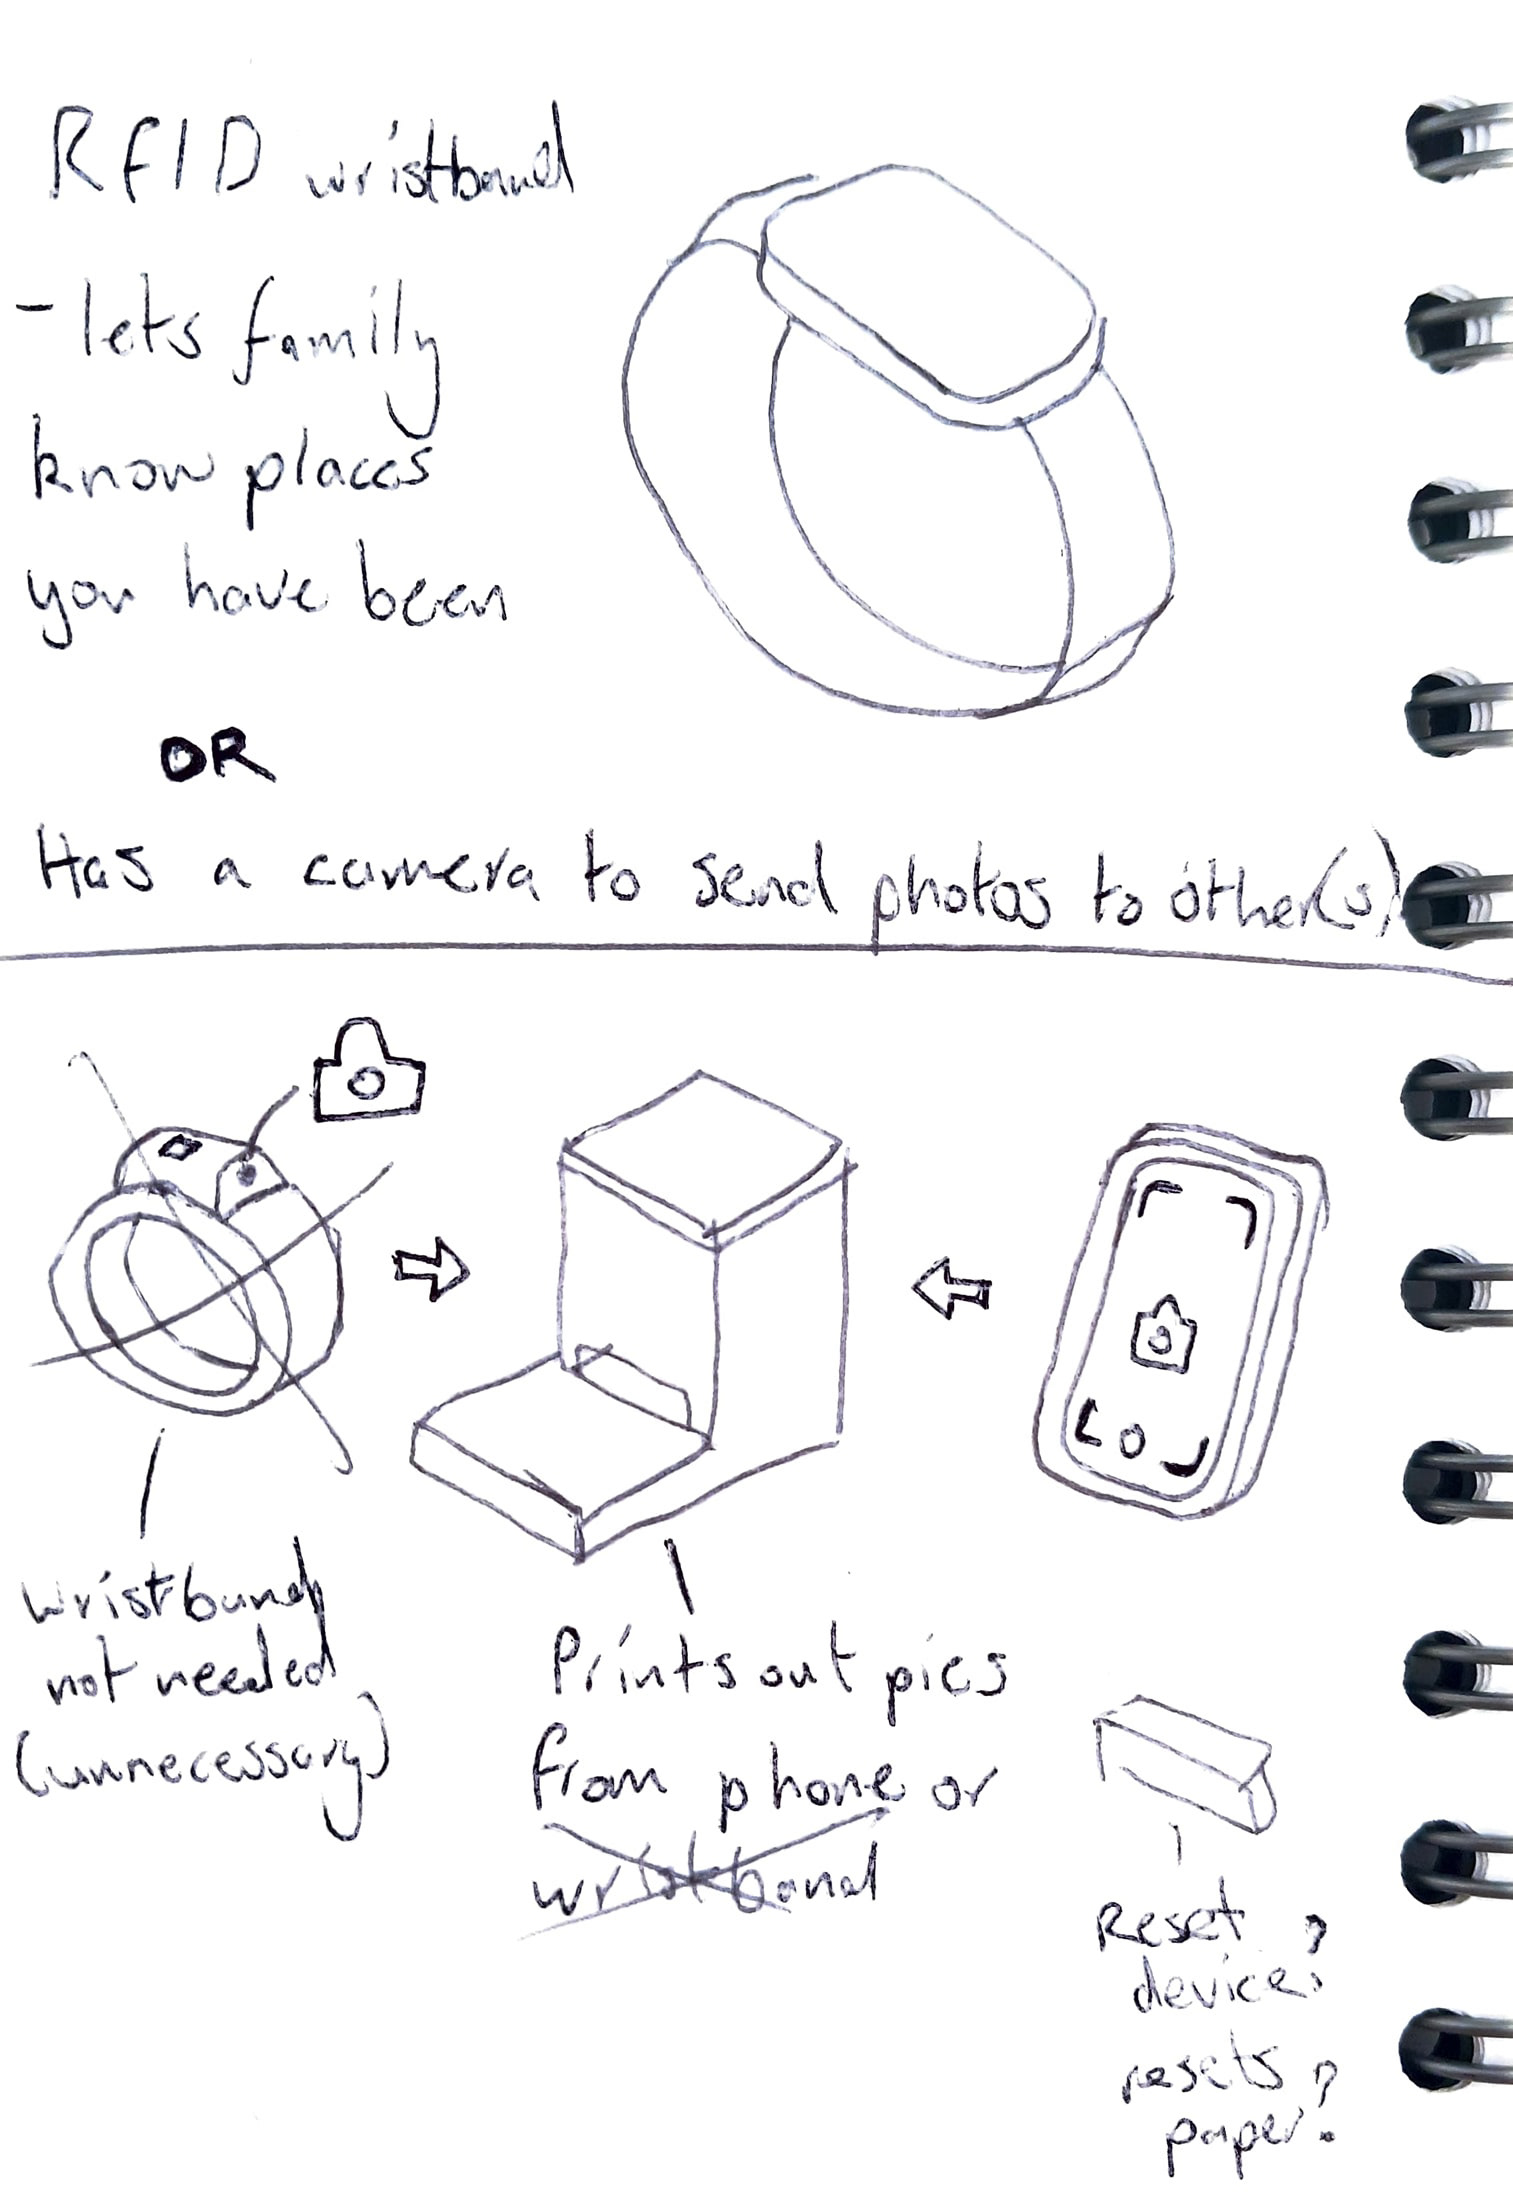 RFID wristband
- lets family
know places
you have been
OR
Has a camera to send photos to other(s)
wristband
not needed
(unnecessary)
Prints out pics
from phone or
wristband
Reset
device?
resets
paper?